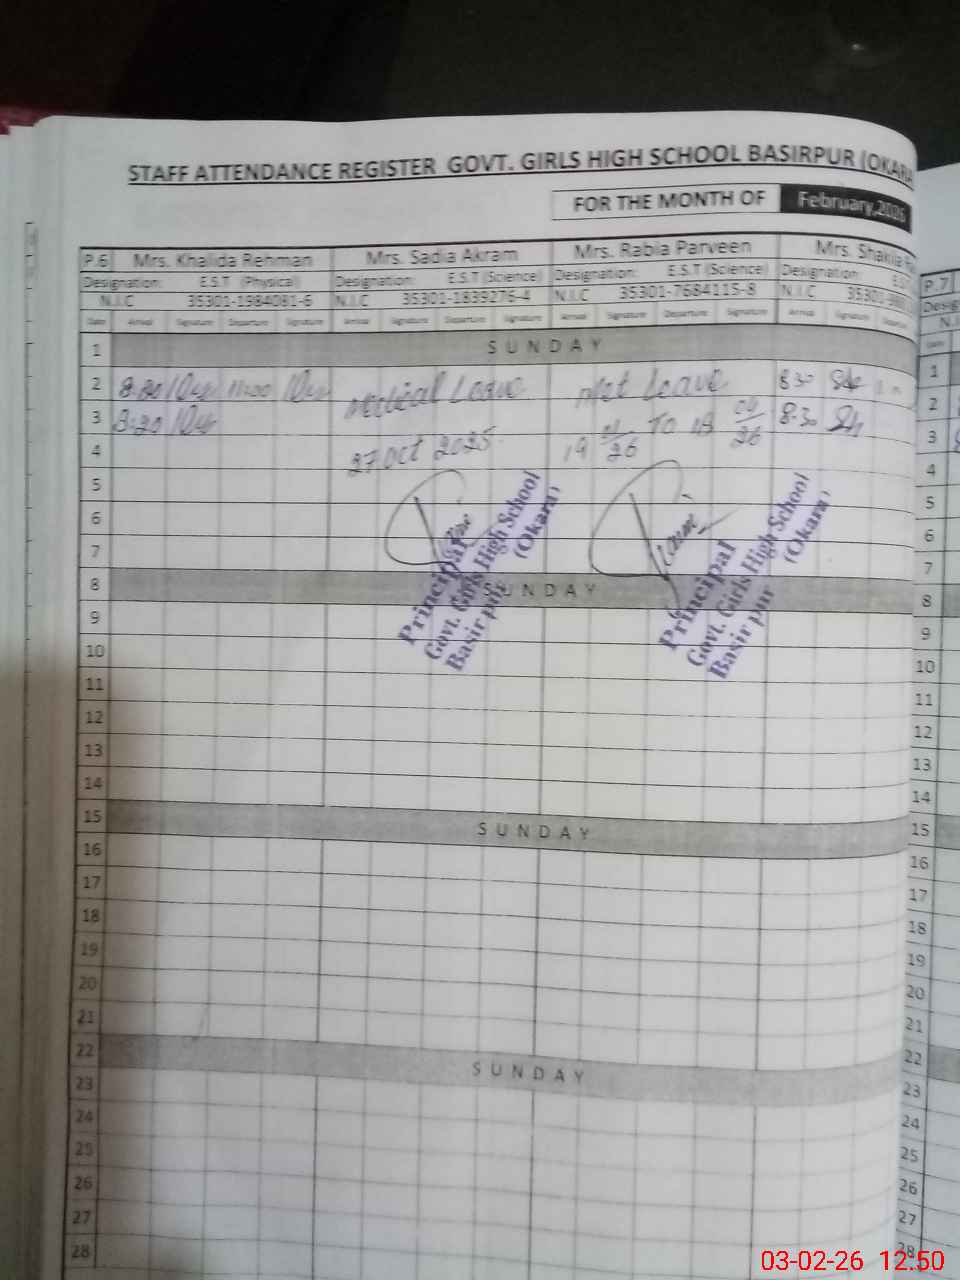 STAFF ATTENDANCE REGISTER GOVT. GIRLS HIGH SCHOOL BASIRPUR (OKARA
FOR THE MONTH OF February,2026
P.6 Mrs. Khalida Rehman Mrs. Sadia Akram Mrs. Rabia Parveen Mrs. Shakila
Designation: E.S.T (Physical) Designation: E.S.T (Science) Designation: E.S.T (Science) Designation:
N.I.C 35301-1984081-6 N.I.C 35301-1839276-4 N.I.C 35301-7684115-8 N.I.C
Date Arrival Signature Departure Signature Arrival Signature Departure Signature Arrival Signature Departure Signature Arrival Signature Departure
1 SUNDAY
2 8:30 11:00 Medical Leave Leave 8:30
3 8:30 8:30
4 27 Oct 2025 19 01/26 TO 18 04/26
5
6
7
Principal
Govt. Girls High School
Basirpur (Okara)
Principal
Govt. Girls High School
Basirpur (Okara)
8 SUNDAY
9
10
11
12
13
14
15 SUNDAY
16
17
18
19
20
21
22 SUNDAY
23
24
25
26
27
28
P.7
N.I
1
2
3
4
5
6
7
8
9
10
11
12
13
14
15
16
17
18
19
20
21
22
23
24
25
26
27
28
03-02-26 12:50